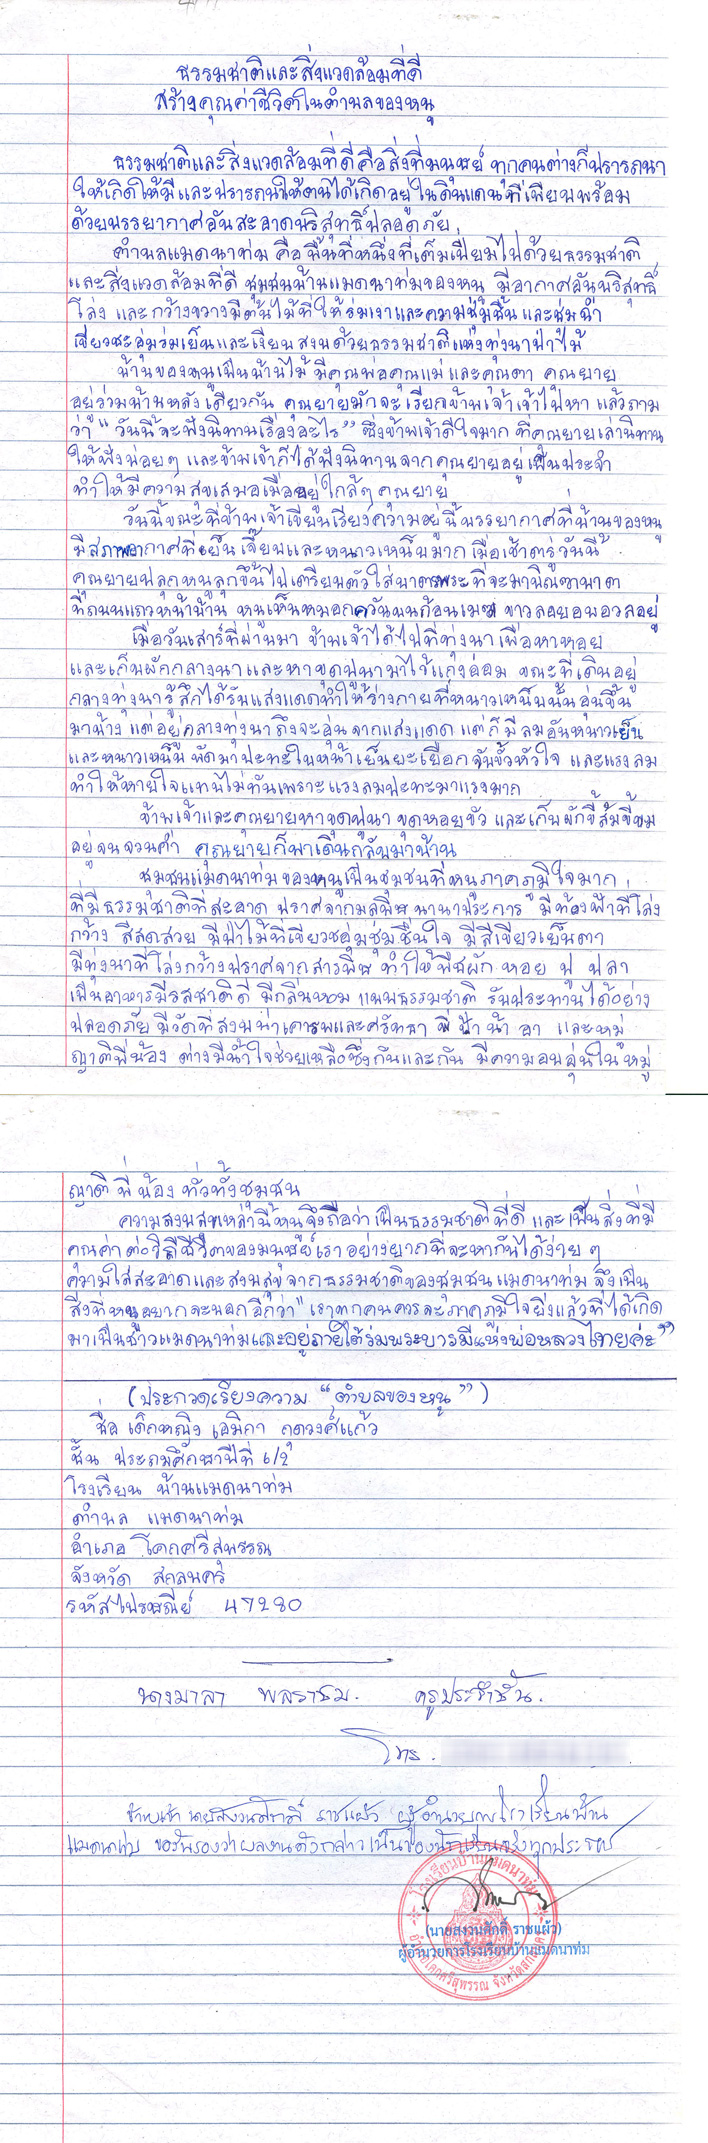 ธรรมชาติและสิ่งแวดล้อมที่ดี
สร้างคุณค่าชีวิตในตำบลของหนู
ธรรมชาติและสิ่งแวดล้อมที่ดีคือสิ่งที่มนุษย์ ทุกคนต่างก็ปรารถนา
ให้เกิดให้มีและปรารถนาให้ตนได้เกิดอยู่ในดินแดนที่เพียบพร้อม
ด้วยบรรยากาศอันสะอาดบริสุทธิ์ปลอดภัย
ตำบลแมดนาท่ม คือ พื้นที่หนึ่งที่เต็มเปี่ยมไปด้วยธรรมชาติ
และสิ่งแวดล้อมที่ดี ชุมชนบ้านแมดนาท่มของหนู มีอากาศอันบริสุทธิ์
โล่ง และกว้างขวางมีต้นไม้ที่ให้ร่มเงาและความชุ่มชื้น และชุ่มฉ่ำ
เขียวชะอุ่มร่มเย็นและเงียบสงบด้วยธรรมชาติแห่งทุ่งนาป่าไม้
บ้านของหนูเป็นบ้านไม้ มีคุณพ่อคุณแม่ และคุณตา คุณยาย
อยู่ร่วมบ้านหลังเดียวกัน คุณยายมักจะเรียกข้าพเจ้าเข้าไปหา แล้วถาม
ว่า " วันนี้จะฟังนิทานเรื่องอะไร " ซึ่งข้าพเจ้าดีใจมาก ที่คุณยายเล่านิทาน
ให้ฟังบ่อยๆ และข้าพเจ้าก็ได้ฟังนิทานจากคุณยายอยู่เป็นประจำ
ทำให้มีความสุขเสมอเมื่ออยู่ใกล้ๆ คุณยาย
วันนี้ขณะที่ข้าพเจ้าเขียนเรียงความอยู่นี้บรรยากาศที่บ้านของหนู
มีสภาพอากาศที่เย็นเจี๊ยบและหนาวเหน็บมาก เมื่อเช้าตรู่วันนี้
คุณยายปลุกหนูลุกขึ้นไปเตรียมตัวใส่บาตรพระที่จะมาบิณฑบาต
ที่ถนนแถวหน้าบ้าน หนูเห็นหมอกควันบนก้อนเมฆ ขาวลอยอบอวลอยู่
เมื่อวันเสาร์ที่ผ่านมา ข้าพเจ้าได้ไปที่ทุ่งนา เพื่อหาหอย
และเก็บผักกลางนา และหาขุดปูนามาไว้แกงอ่อม ขณะที่เดินอยู่
กลางทุ่งนารู้สึกได้รับแสงแดดทำให้ร่างกายที่หนาวเหน็บนั้นอุ่นขึ้น
มาบ้าง แต่อยู่กลางทุ่งนาถึงจะอุ่นจากแสงแดด แต่ก็มีลมอันหนาวเย็น
และหนาวเหน็บ พัดมาปะทะใบหน้าเย็นยะเยือกจับขั้วหัวใจ และแรงลม
ทำให้หายใจแทบไม่ทันเพราะแรงลมปะทะมาแรงมาก
ข้าพเจ้าและคุณยายหาขุดปูนา ขุดหอยขัว และเก็บผักขี้ส้มขี้ขม
อยู่จนจวนค่ำ คุณยายก็พาเดินกลับมาบ้าน
ชุมชนแมดนาท่มของหนูเป็นชุมชนที่หนูภาคภูมิใจมาก
ที่มีธรรมชาติที่สะอาด ปราศจากมลพิษนานาประการ มีท้องฟ้าที่โล่ง
กว้าง สีสดสวย มีป่าไม้ที่เขียวชอุ่มชุ่มชื่นใจ มีสีเขียวเย็นตา
มีทุ่งนาที่โล่งกว้างปราศจากสารพิษ ทำให้พืชผัก หอย ปู ปลา
เป็นอาหารมีรสชาติดี มีกลิ่นหอม แบบธรรมชาติ รับประทานได้อย่าง
ปลอดภัย มีวัดที่สงบน่าเคารพและศรัทธา พี่ ป้า น้า อา และหมู่
ญาติพี่น้อง ต่างมีน้ำใจช่วยเหลือซึ่งกันและกัน มีความอบอุ่นในหมู่
ญาติ พี่ น้อง ทั่วทั้งชุมชน
ความสงบสุขเหล่านี้หนูจึงถือว่า เป็นธรรมชาติที่ดี และเป็นสิ่งที่มี
คุณค่า ต่อวิถีชีวิตของมนุษย์เรา อย่างยากที่จะหากันได้ง่าย ๆ
ความใสสะอาดและสงบสุขจากธรรมชาติของชุมชนแมดนาท่ม จึงเป็น
สิ่งที่หนูอยากจะบอกอีกว่า " เราทุกคนควรจะภาคภูมิใจยิ่งแล้วที่ได้เกิด
มาเป็นชาวแมดนาท่มและอยู่ภายใต้ร่มพระบารมีแห่งพ่อหลวงไทยค่ะ "
(ประกวดเรียงความ " ตำบลของหนู ")
ชื่อ เด็กหญิง เอมิกา กุดวงศ์แก้ว
ชั้น ประถมศึกษาปีที่ 6/2
โรงเรียน บ้านแมดนาท่ม
ตำบล แมดนาท่ม
อำเภอ โคกศรีสุพรรณ
จังหวัด สกลนคร
รหัสไปรษณีย์ 47280
นางมาลา พลราชม. ครูประจำชั้น.
โทร.
ข้าพเจ้า นายสงวนศักดิ์ ราชแผ้ว ผู้อำนวยการโรงเรียนบ้าน
แมดนาท่ม ขอรับรองว่าผลงานดังกล่าวเป็นของนักเรียนจริงทุกประการ
โรงเรียนบ้านแมดนาท่ม
(นายสงวนศักดิ์ ราชแผ้ว)
ผู้อำนวยการโรงเรียนบ้านแมดนาท่ม
อำเภอโคกศรีสุพรรณ จังหวัดสกลนคร